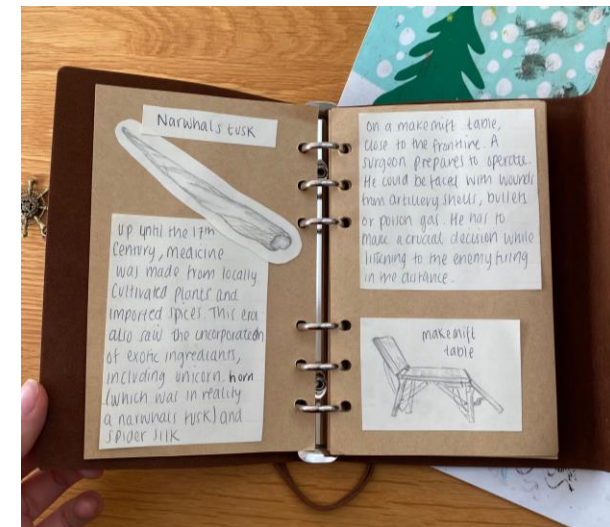 Narwhals tusk
up until the 17th
century, medicine
was made from locally
cultivated plants and
imported spices. This era
also saw the uncorporateon
of exotic ingrediants,
including unicorn horn
(which was in reality
a narwhals tusk) and
spider silk
on a makeshift table,
close to the frontline. A
surgeon prepares to operate.
He could be faced with wounds
from artillery shells, bullets
or poison gas. He has to
make a crucial decision while
listening to the enemy firing
in the distance.
makeshift
table